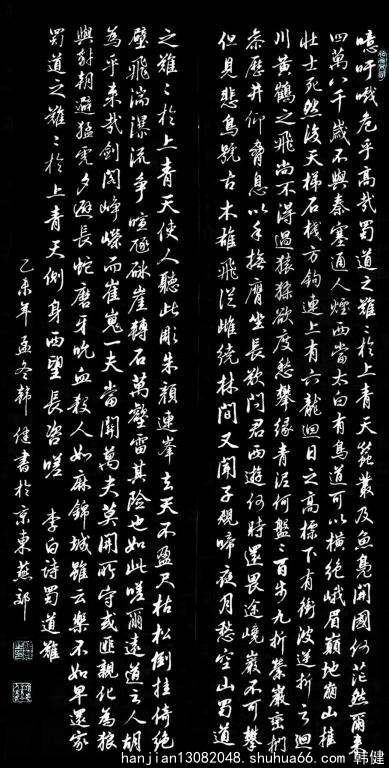 噫吁嚱危乎高哉蜀道之難々於上青天蚕叢及魚鳧開國何茫然爾来
四萬八千歲不與秦塞通人煙西當太白有鳥道可以橫絕峨眉巔地崩山摧
壯士死然後天梯石棧方鉤連上有六龍迴日之高標下有衝波逆折之迴
川黃鶴之飛尚不得過猿猱欲度愁攀緣青泥何盤々百步九折縈巖巒捫
參歷井仰脅息以手撫膺坐長歎問君西遊何時還畏途巉巖不可攀
但見悲鳥號古木雄飛從雌繞林間又聞子規啼夜月愁空山蜀道
之難々於上青天使人聽此彫朱顏連峯去天不盈尺枯松倒挂倚絕
壁飛湍瀑流爭喧豗砯崖轉石萬壑雷其險也如此嗟爾遠道之人胡
為乎来哉劍閣崢嶸而崔嵬一夫當關萬夫莫開所守或匪親化為狼
與豺朝避猛虎夕避長蛇磨牙吮血殺人如麻錦城雖云樂不如早還家
蜀道之難々於上青天側身西望長咨嗟 李白詩蜀道難
乙未年孟冬韓健書於京東燕郊
hanjian13082048.shuhua66.com 韩健